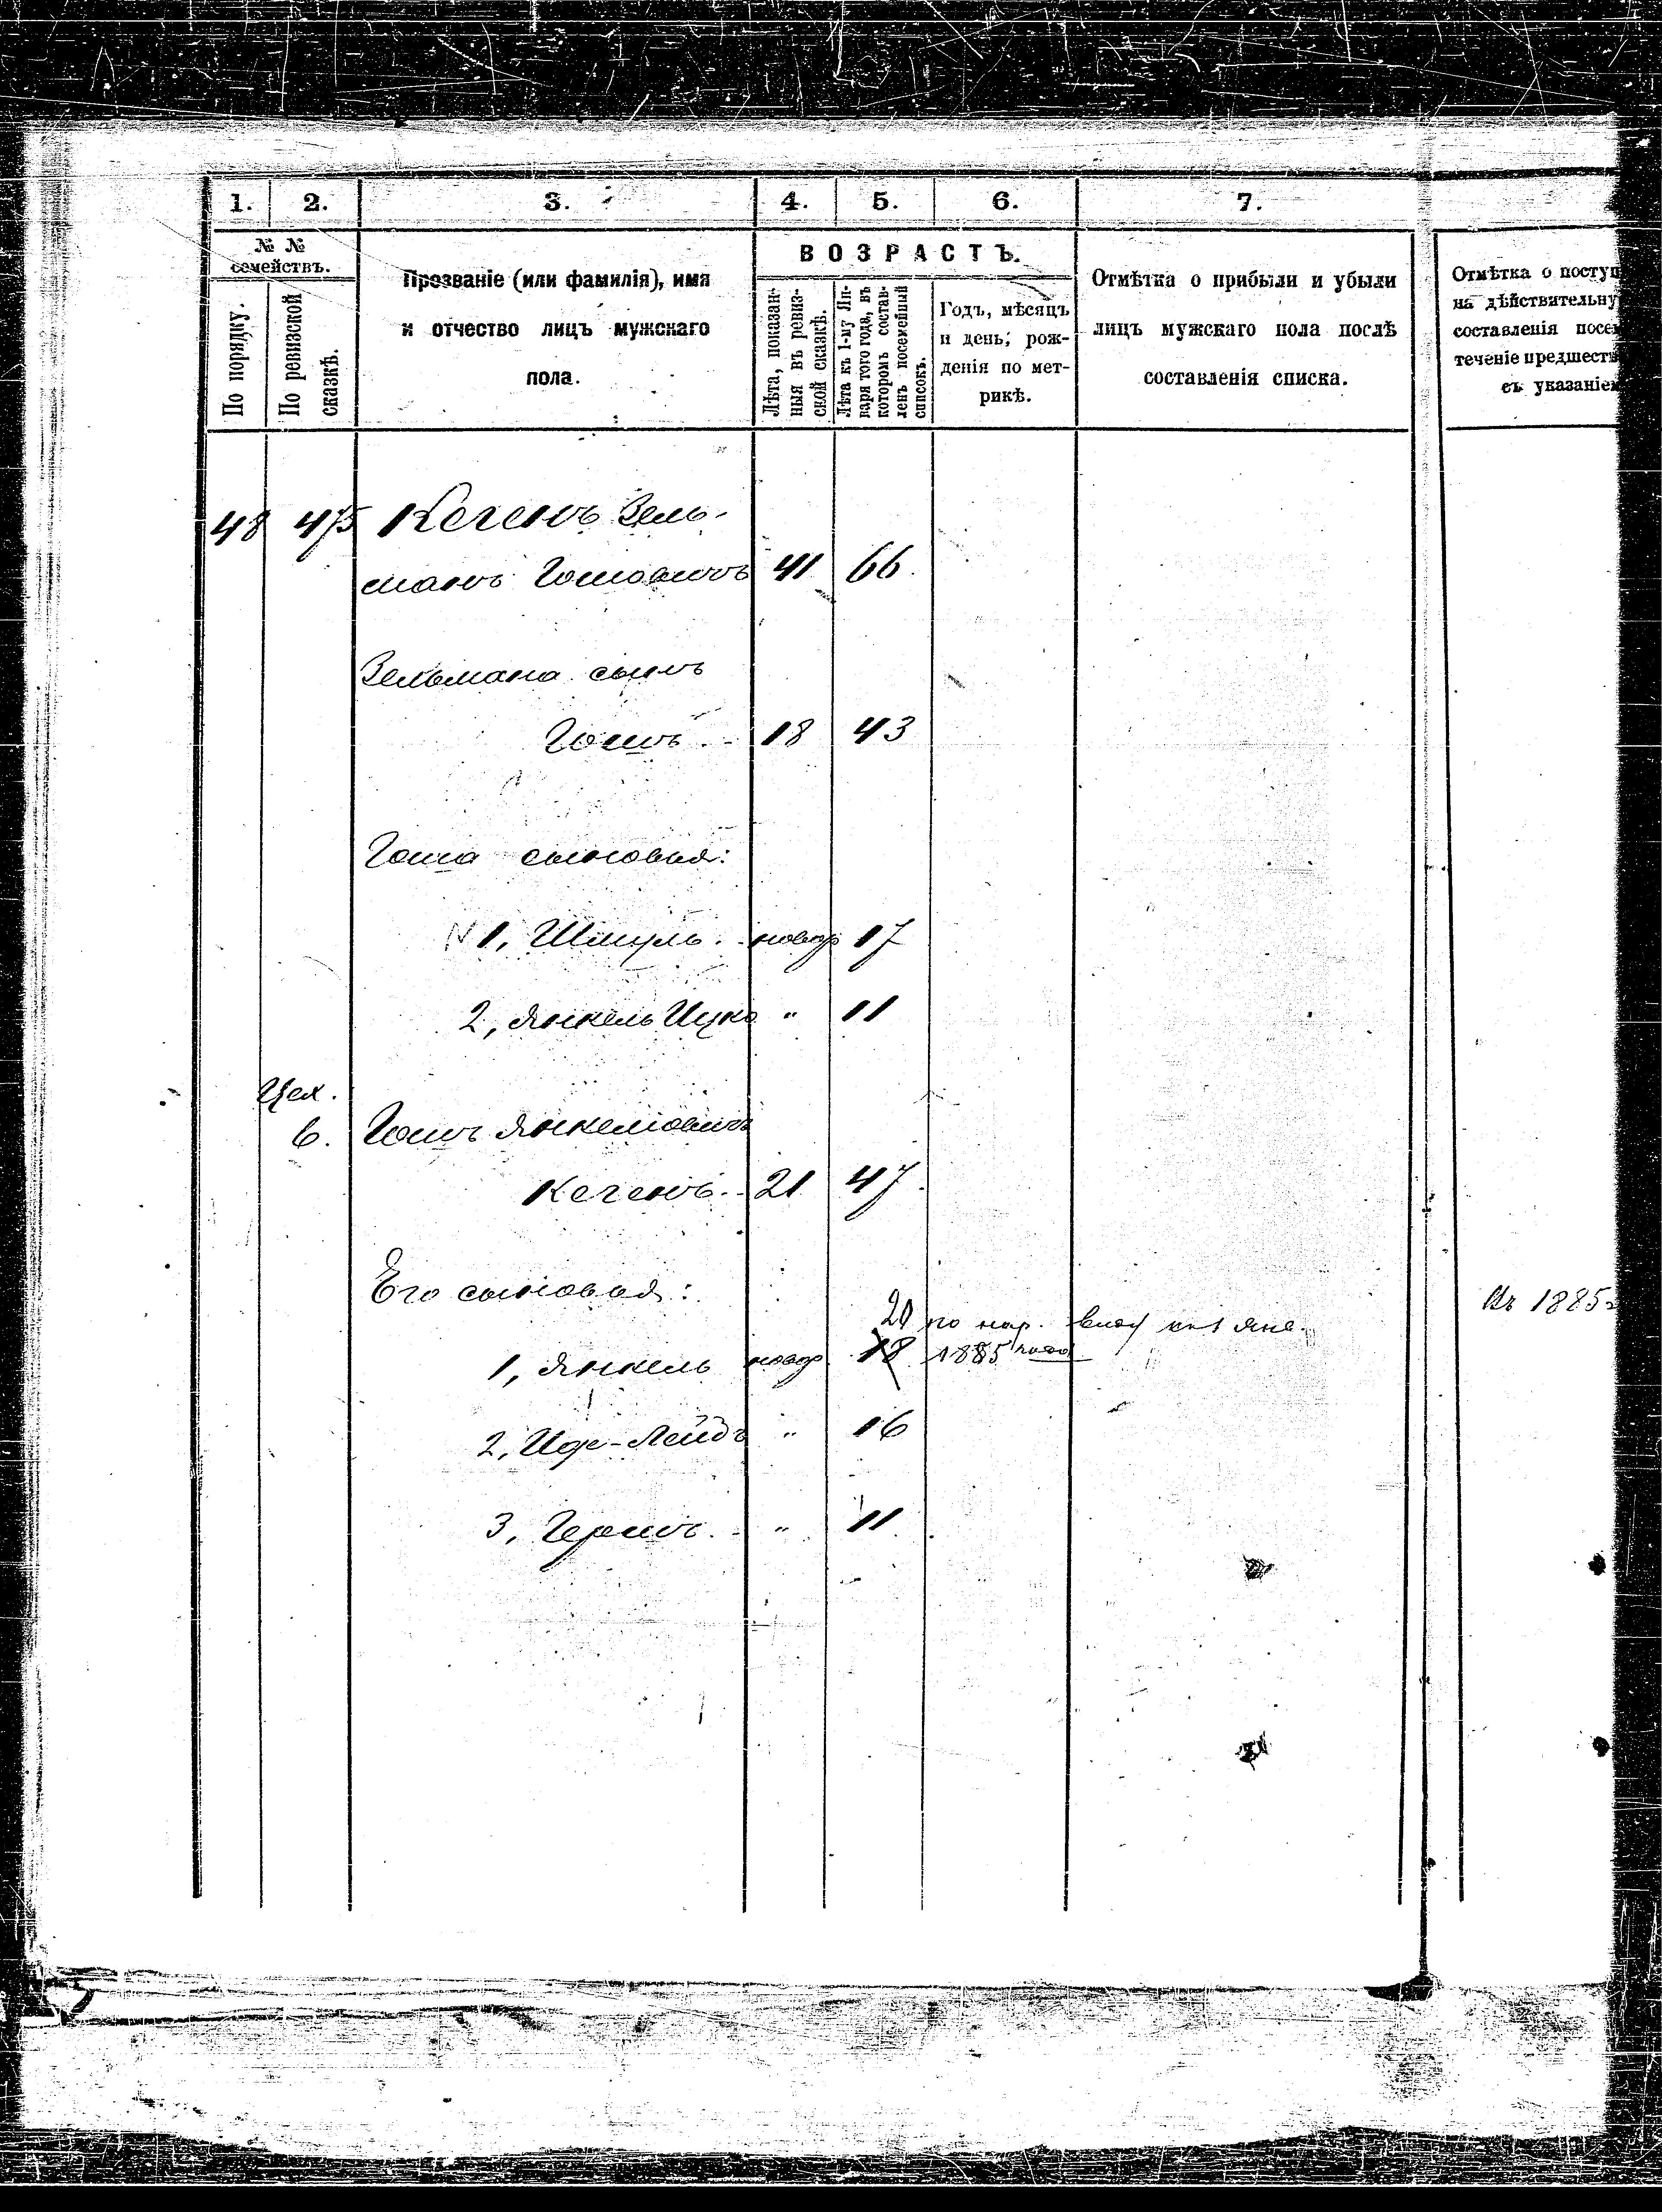 1. 2. 3. 4. 5. 6. 7.
№ № семействъ.
По порядку.
По ревизской сказкѣ.
Прозваніе (или фамилія), имя
и отчество лицъ мужскаго
пола.
ВОЗРАСТЪ.
Лѣта, показан-
ныя въ ревиз-
ской сказкѣ.
Лѣта къ 1-му Ян-
варя того года, въ
которомъ состав-
ленъ посемейный
списокъ.
Годъ, мѣсяцъ
и день, рож-
денія по мет-
рикѣ.
Отмѣтка о прибыли и убыли
лицъ мужскаго пола послѣ
составленія списка.
Отмѣтка о поступ
на дѣйствительну
составленія посем
теченіе предшеств
съ указаніем
48 475 Кегенъ Зель-
манъ Гошовичъ 41 66
Зельмана сынъ
Гошъ 18 43
Гоша сыновья:
N 1, Шмуль новор 17
2, Янкель Ицко " 11
Цех.
6. Гошъ Янкелювичъ
Кегенъ 21 47
Его сыновья:
20 по нар. виду
Въ 1885
1, Янкель новор 18 1885 года
2, - Лейбъ " 16
3, Гершъ " 11